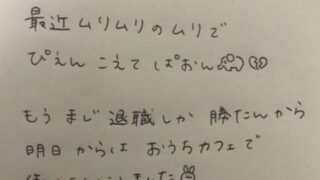 最近ムリムリのムリで
ぴえん こえて ぱおん
もう まじ 退職しか 勝たんから
明日 からは おうちカフェで